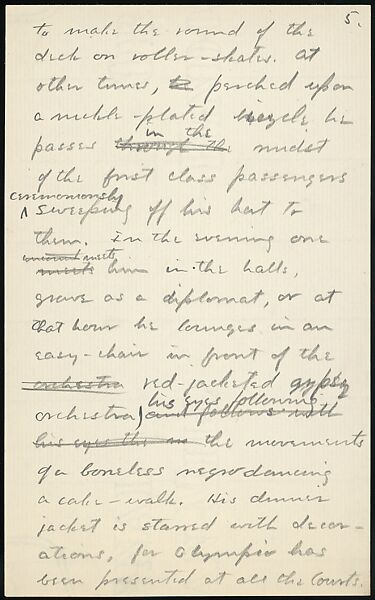 5.
to make the round of the
deck on roller-skates. At
other times, he perched upon
a nickle-plated bicycle he
passes through the in the midst
of the first class passengers
ceremoniously
^ sweeping off his hat to
them. In the evening one
encount meets
meets him in the halls,
grave as a diplomat, or at
that hour he lounges in an
easy-chair in front of the
orchestra red-jacketed gypsy
his eyes following
orchestra, and follows with
his eyes the the movements
of a boneless negro dancing
a cake-walk. His dinner
jacket is starred with decor-
ations, for Olympio has
been presented at all the Courts.